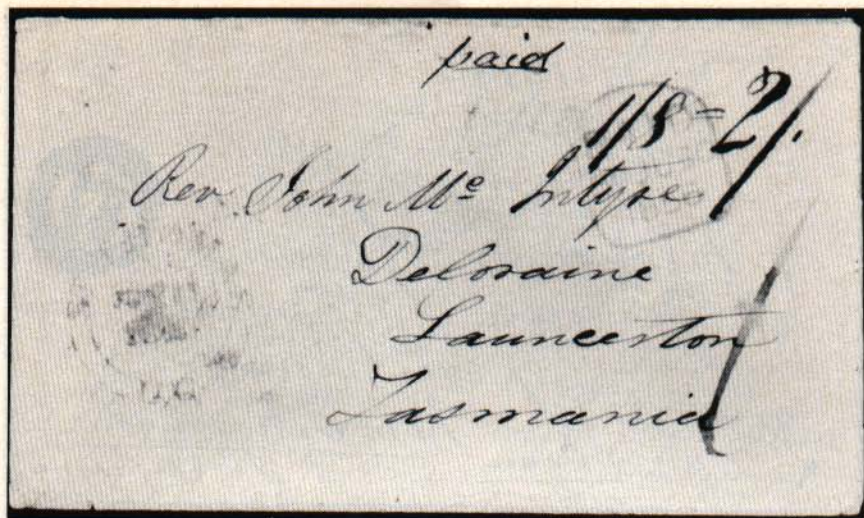 paid
1/8 = 2/.
Rev. John Mc Intyre
Deloraine
Launceston
Tasmania
1